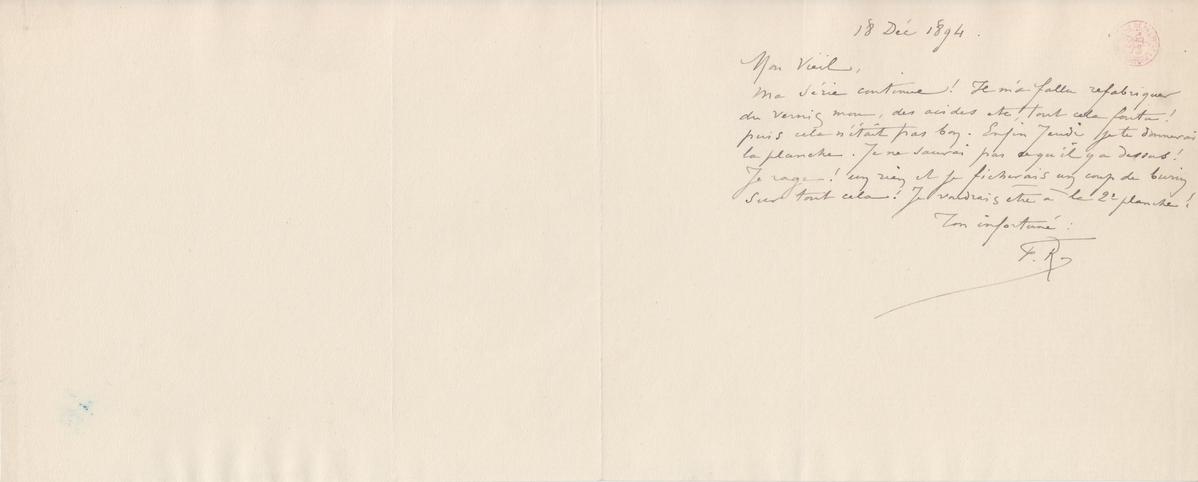 18 Déc 1894.
Mon Vieil,
Ma série continue! Il m'a fallu refabriquer
du vernis mou, des acides etc, tout cela foutu!
puis cela n'était pas bon. Enfin Jeudi je te donnerai
la planche. Je ne saurai pas ce qu'il y a dessus!
Je rage! un rien et je ficherais un coup de burin
sur tout cela! Je voudrais être à la 2e planche!
Ton infortuné:
F. R.